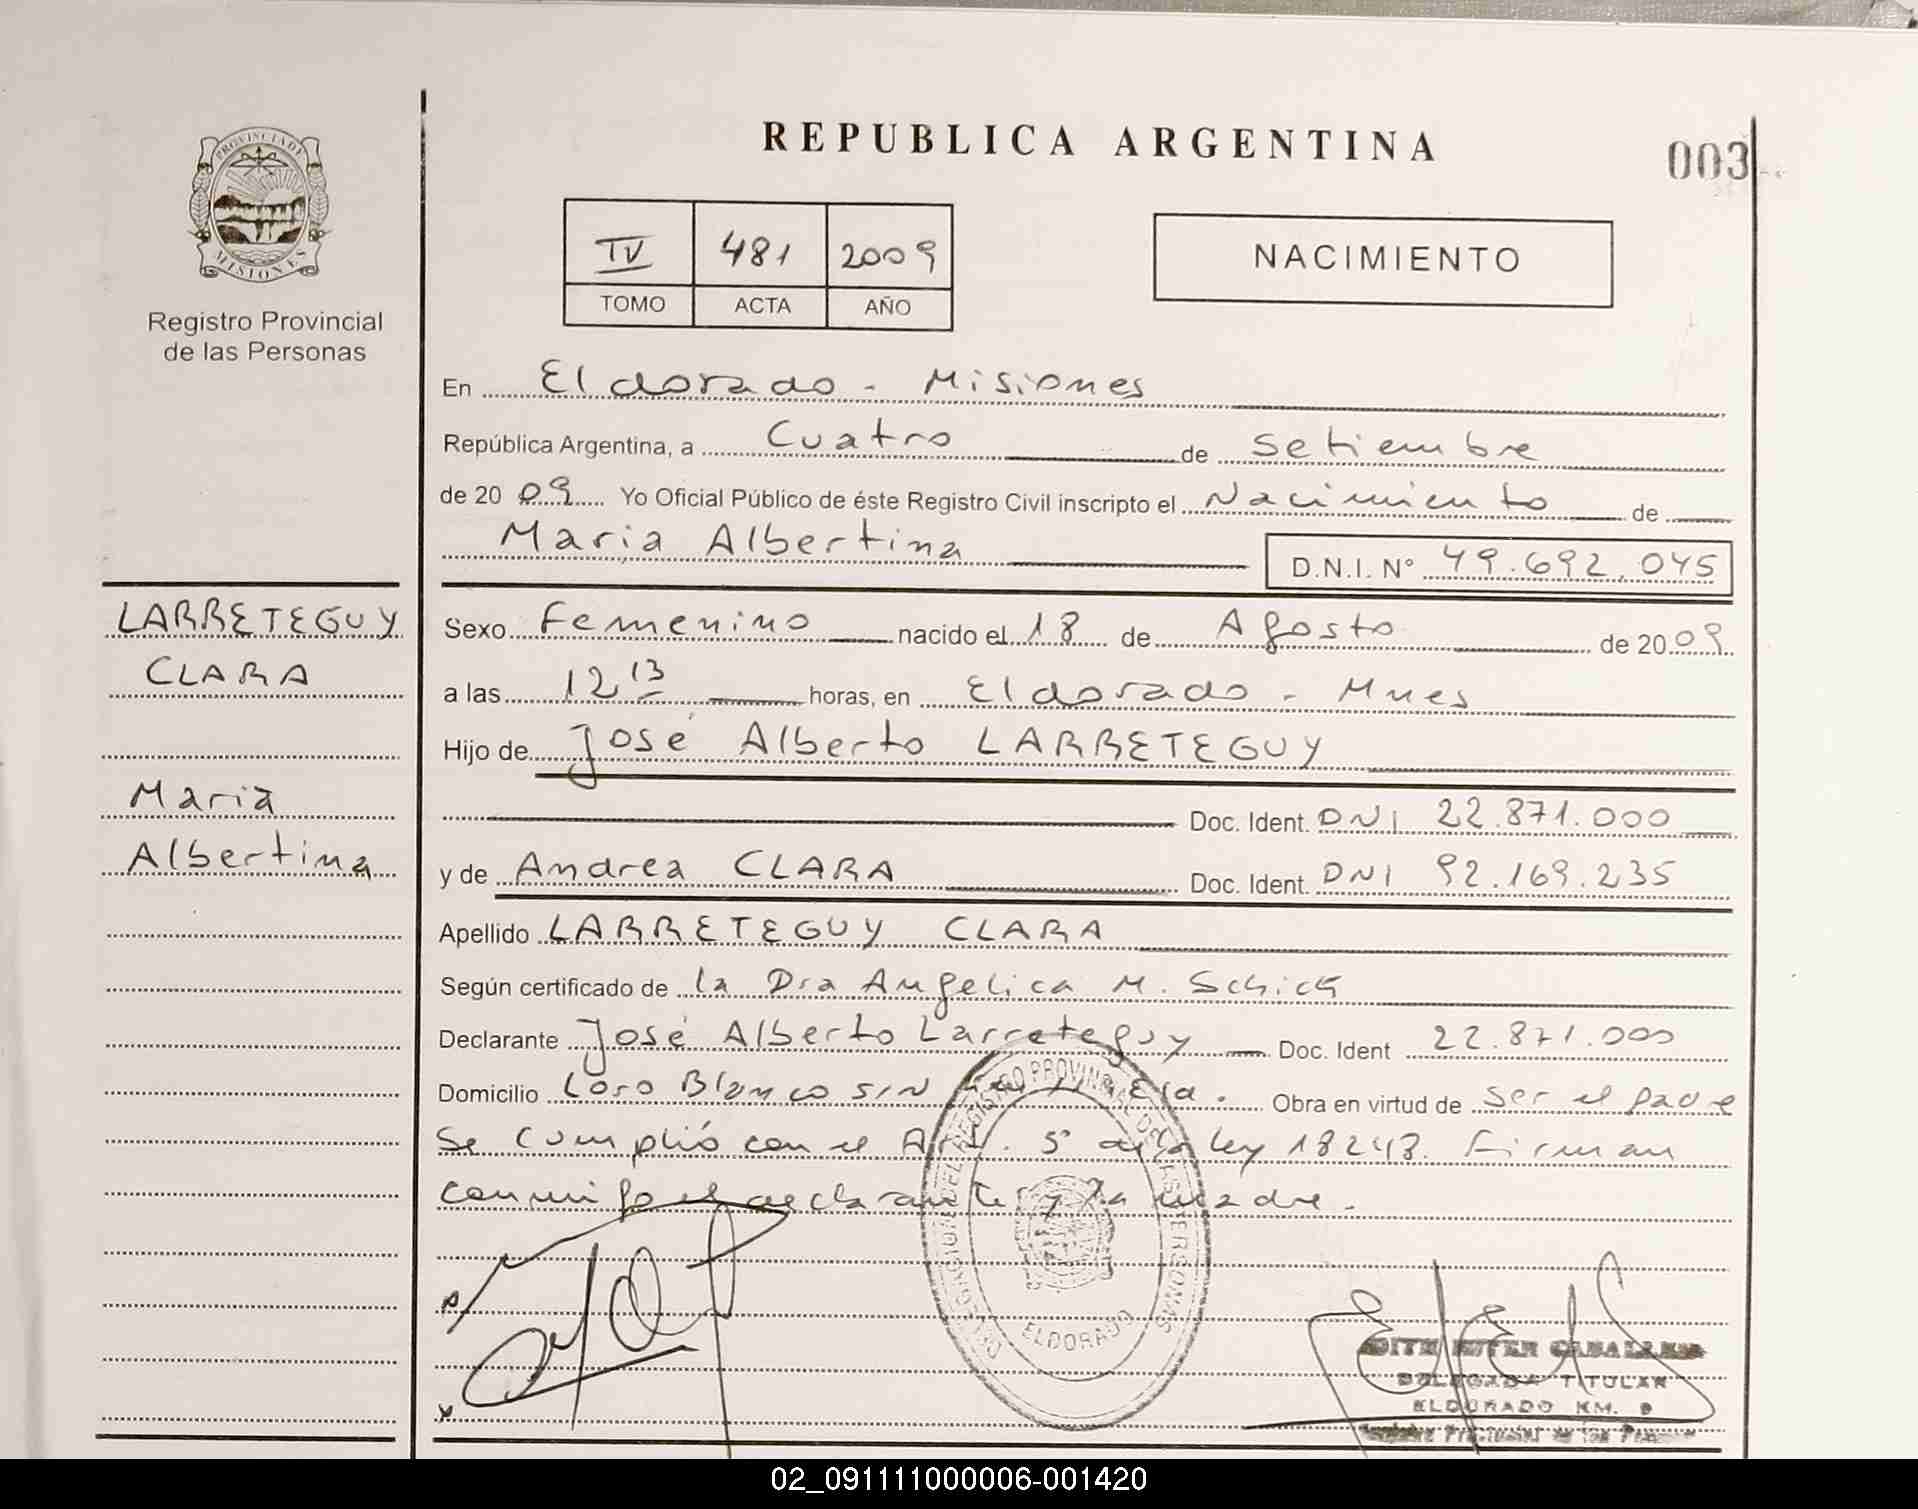 REPUBLICA ARGENTINA
003
PROVINCIA DE
MISIONES
Registro Provincial
de las Personas
IV 481 2009
TOMO ACTA AÑO
NACIMIENTO
En Eldorado - Misiones
República Argentina, a Cuatro de Setiembre
de 20 09 Yo Oficial Público de éste Registro Civil inscripto el Nacimiento de
Maria Albertina D.N.I. N° 49.692.045
LARRETEGUY
CLARA
Maria
Albertina
Sexo Femenino nacido el 18 de Agosto de 20 09
a las 12 13 horas, en Eldorado - Mnes
Hijo de José Alberto LARRETEGUY
Doc. Ident. DNI 22.871.000
y de Andrea CLARA Doc. Ident. DNI 92.169.235
Apellido LARRETEGUY CLARA
Según certificado de la Dra Angelica M. Schick
Declarante José Alberto Larreteguy Doc. Ident 22.871.000
Domicilio Loro Blanco S/N Obra en virtud de ser el padre
Se cumplió con el Art. 5° de la ley 18248. Firman
conmigo el declarante y la madre.
DELEGACION DEL REGISTRO PROVINCIAL DE LAS PERSONAS
ELDORADO
CABALLERO
DELEGADA TITULAR
ELDORADO KM. 9
Registro Provincial de las Personas
02_091111000006-001420